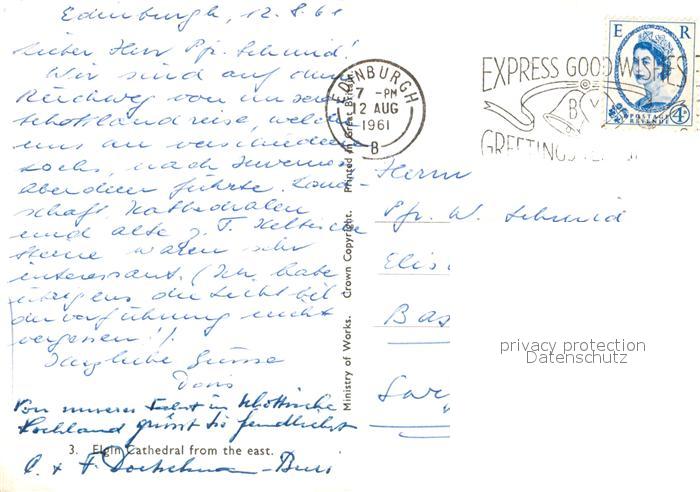 Edinburgh, 12.8.61
Lieber Herr Pfr. Schmid!
Wir sind auf dem
Rückweg von unserer
Schottlandreise, welche
uns an verschiedene
Lochs, nach Inverness
Aberdeen führte. Land-
schaft, Kathedralen
und alte z. T. Keltische
Steine waren sehr
interessant. (Ich habe
übrigens die Lichtbil-
dervorführung nicht
vergessen!).
Herzliche Grüsse
Doris
Von unserer Fahrt im schottischen
Hochland grüsst Sie freundlichst
3. Elgin Cathedral from the east.
C. + F.
Ministry of Works. Crown Copyright. Printed in Great Britain
EDINBURGH
7 - PM
12 AUG
1961
B
EXPRESS GOOD WISHES
BY
GREETINGS
E R
POSTAGE
REVENUE
4D
Herrn
Pfr. W. Schmid
Elis
Bas
privacy protection
Datenschutz